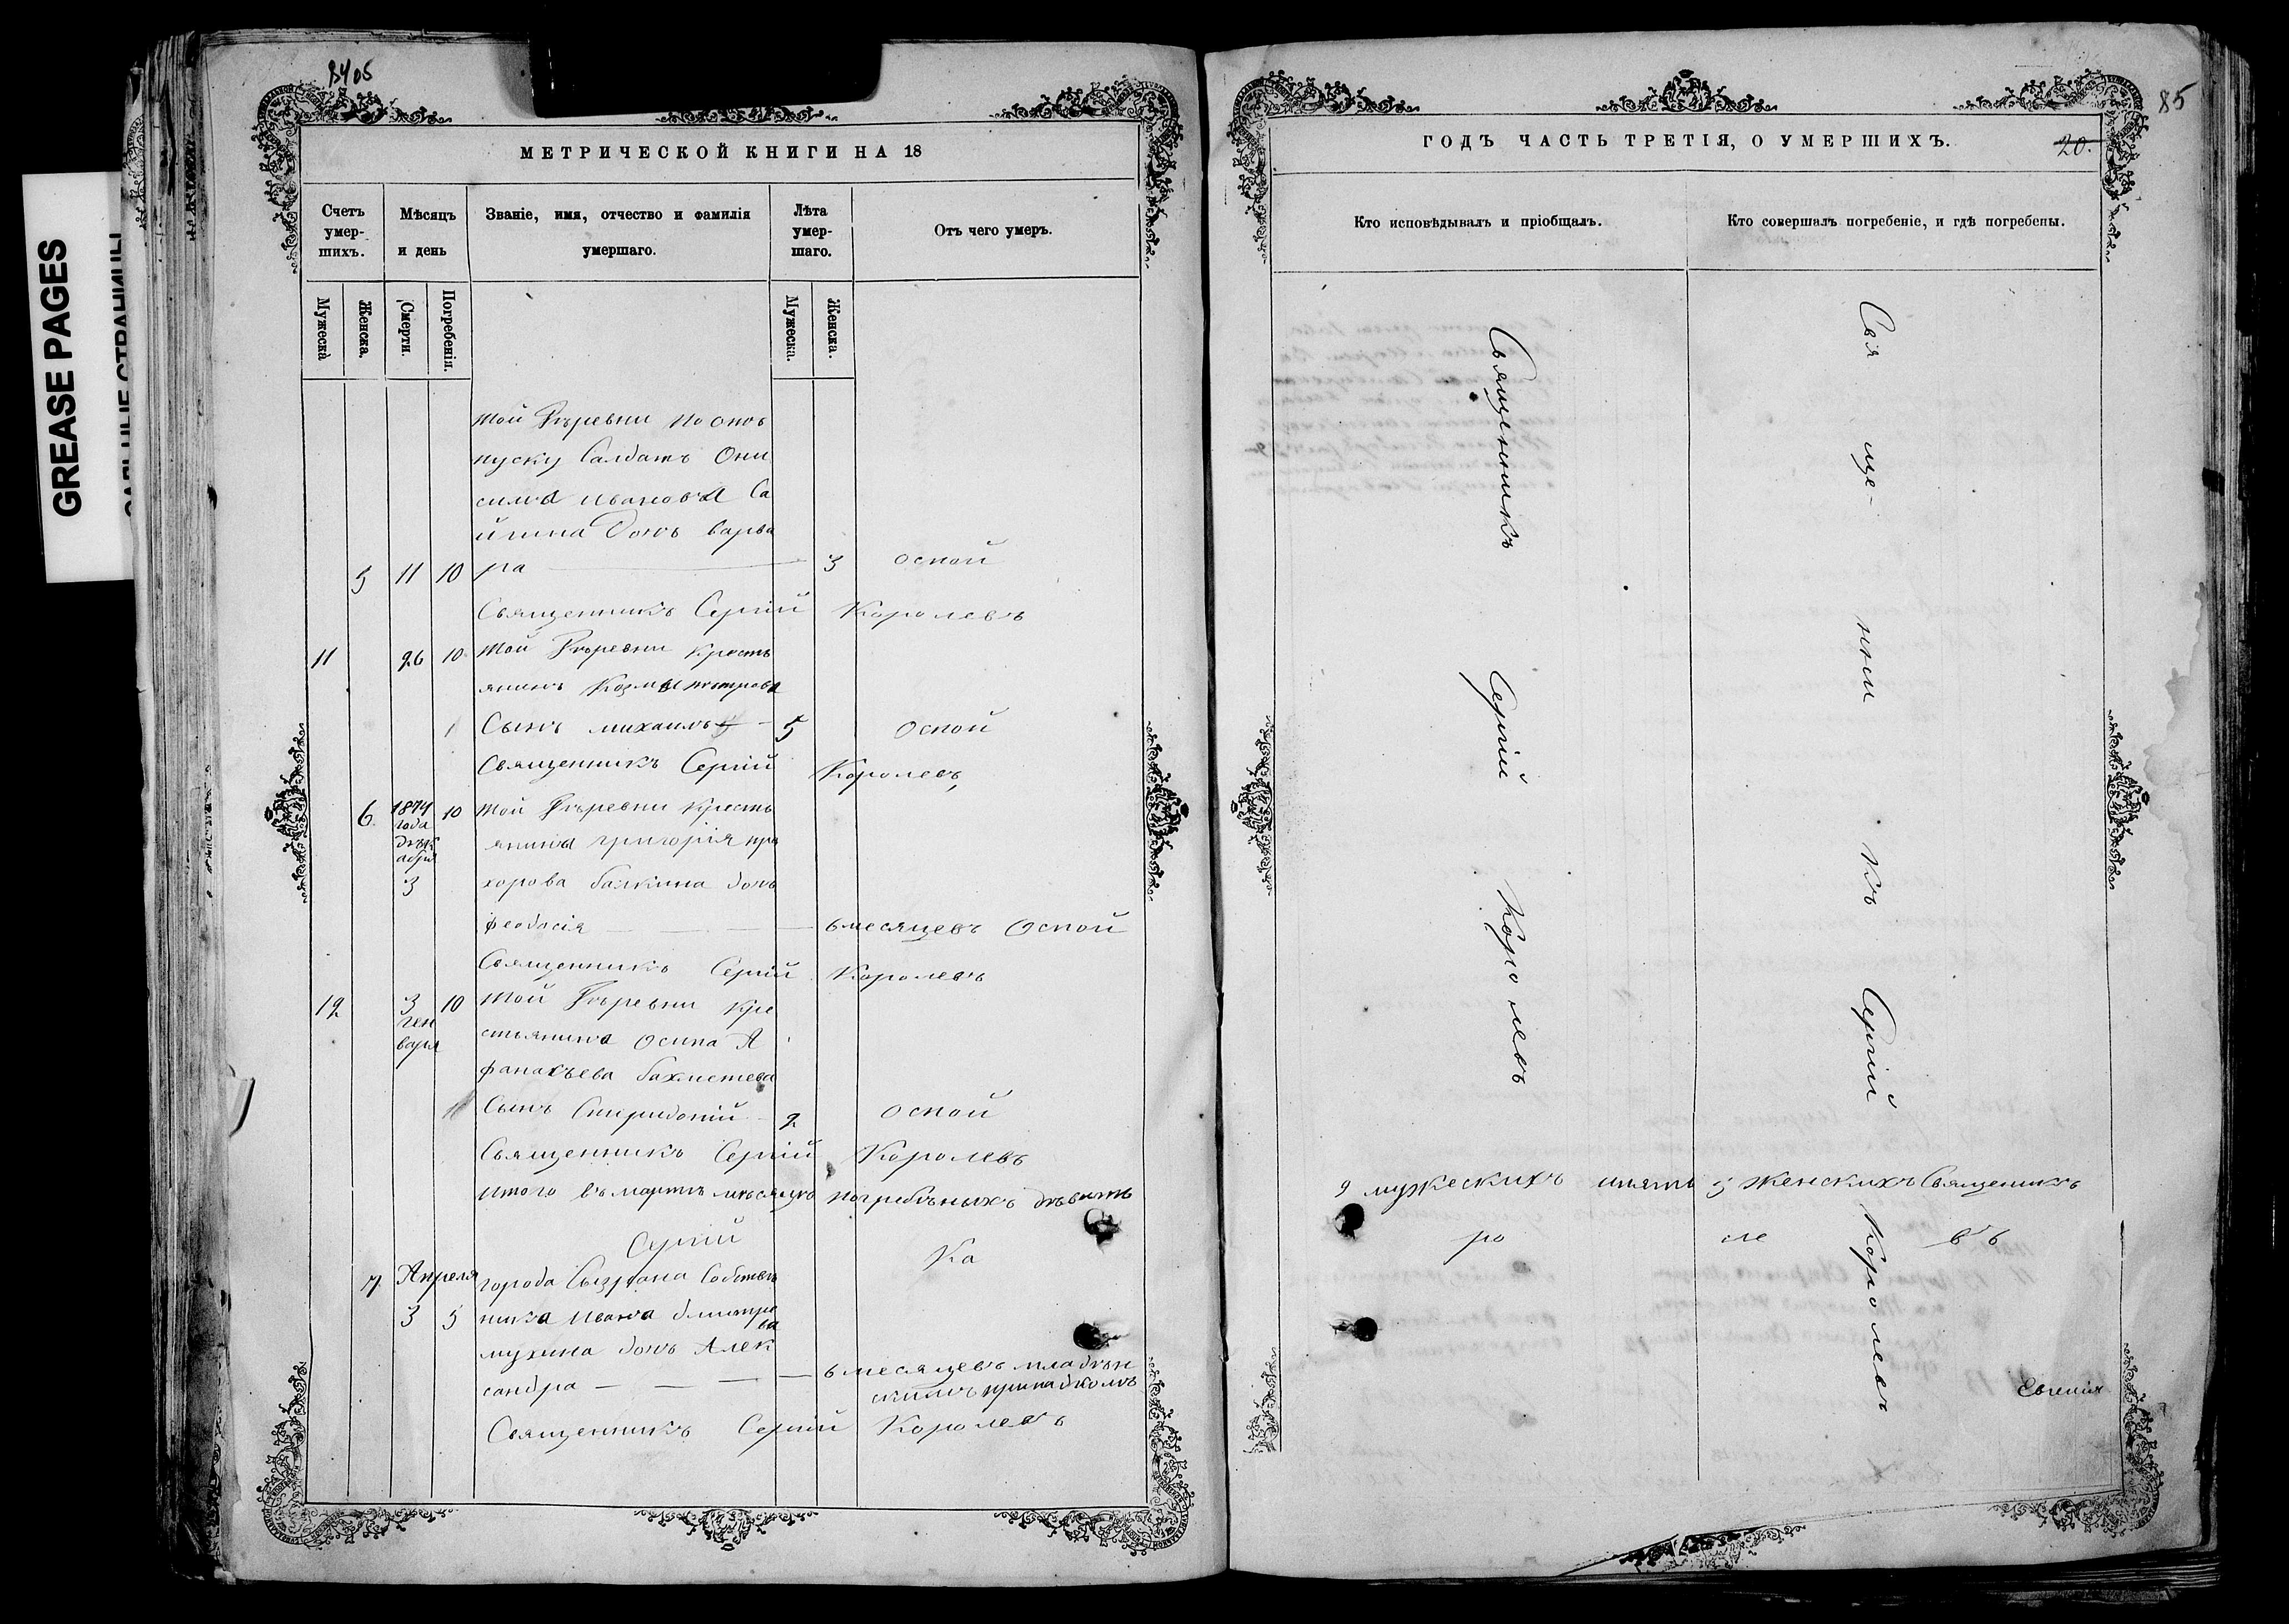 8405
МЕТРИЧЕСКОЙ КНИГИ НА 18
Счетъ умер-шихъ.
Мѣсяцъ и день
Званіе, имя, отчество и фамилія умершаго.
Лѣта умер-шаго.
Отъ чего умеръ.
Мужеска
Женска.
Смерти.
Погребенія.
Мужеска.
Женска.
той Деревни по отъ
пуску Салдатъ Они
сима Иванова Са
йгина дочь варва
5 11 10 ра 3 оспой
Священникъ Сергій Королевъ
11 26 10 той Деревни Кресть
янинъ Козмы петрова
Сынъ михаилъ 5 Оспой
Священникъ Сергій Королевъ,
6. 1874 10 той Деревни кресть
года
янина григорія про
3 хорова балкина дочь
феодосія 6 месяцевъ Оспой
Священникъ Сергій Королевъ
12 3 10 той Деревни кре
ген
варя
стьянина осипа А
фанасьева бахметева
Сынъ Спиридоній 2 оспой
Священникъ Сергій Королевъ
итого въ мартѣ мѣсяцѣ погребѣныхъ дѣвять
Сергій Ка
7. Апреля города Сызрана Собствен
3 5 ника Ивана дмитре
ва
мухина дочь Алек
сандра 6 месяцевъ младѣн
скимъ припадкомъ
Священникъ Сергій Королевъ
85
ГОДЪ ЧАСТЬ ТРЕТІЯ, О УМЕРШИХЪ.
20.
Кто исповѣдывалъ и пріобщалъ.
Кто совершалъ погребеніе, и гдѣ погребены.
Священникъ Сергій Королевъ
Свя ще- нни къ Сергій Королевъ
9 мужескихъ ипять 5 женскихъ Священикъ
ро ле въ
Евгеній
GREASE PAGES